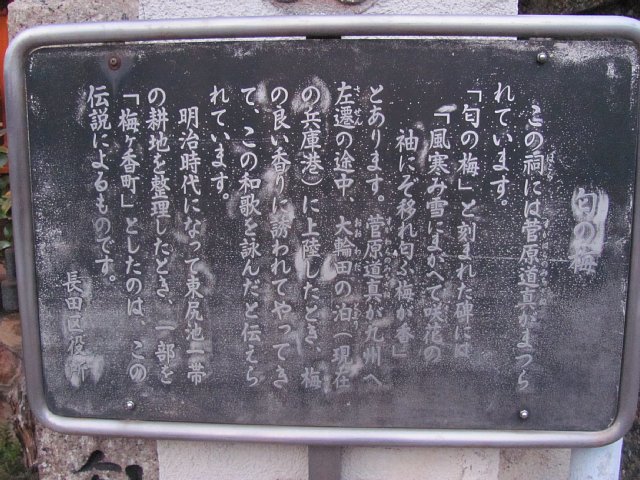 匂の梅
この祠には菅原道真がまつら
れています。
「匂の梅」と刻まれた碑には
「風寒み雪にまがへて咲花の
袖にぞ移れ匂ふ梅が香」
とあります。菅原道真が九州へ
左遷の途中、大輪田の泊(現在
の兵庫港)に上陸したとき、梅
の良い香りに誘われてやってき
て、この和歌を詠んだと伝えら
れています。
明治時代になって東尻池一帯
の耕地を整理したとき、一部を
「梅ヶ香町」としたのは、この
伝説によるものです。
長田区役所